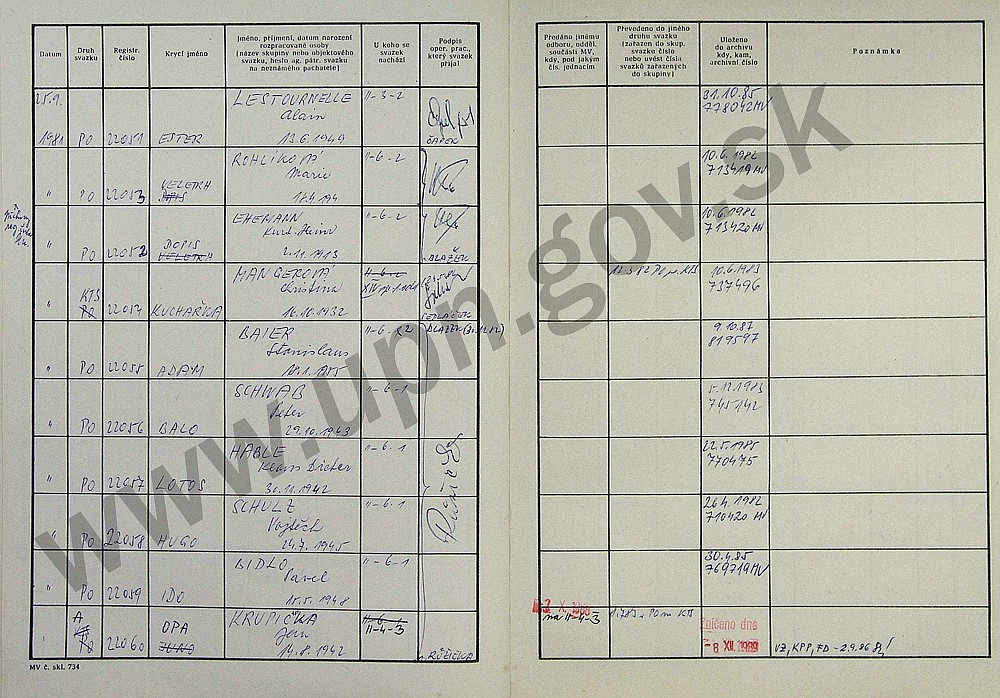 Datum
Druh svazku
Registr. číslo
Krycí jméno
Jméno, příjmení, datum narození
rozpracované osoby
(název skupiny nebo objektového
svazku, heslo ag. pátr. svazku
na neznámého pachatele)
U koho se
svazek
nachází
Podpis
oper. prac.,
který svazek
přijal
Předáno jinému
odboru, odděl.
součásti MV,
kdy, pod jakým
čís. jednacím
Převedeno do jiného
druhu svazku
(zařazen do skup.
svazku číslo
nebo uvést čísla
svazků zařazených
do skupiny)
Uloženo
do archivu
kdy, kam,
archivní číslo
Poznámka
25.9. LESTOURNELLE II-3-2 31.10.85
Alain 778042 MV
1981 PO 22051 ESTER 13.6.1949 ČAPEK
ROHLÍKOVÁ II-6-2 10.6.1982
VELETRH Marie 713419 MV
" PO 22053 DOPIS
EHEMANN II-6-2 10.6.1982
DOPIS Kurt Heinz 713420 MV
" PO 22052 VELETRH 2.11.1913 BLAŽEK
MANGEROVÁ II-6-2 10.6.1983
KTS Kristina 737496
" PO 22054 KUCHAŘKA 16.10.1932 SEDLÁČEK
BAIER II-6-2 BLAŽEK 9.10.87
Stanislaus 819597
" PO 22055 ADAM
SCHWAB II-6-1 5.12.1983
Peter 745142
" PO 22056 BALO 29.10.1943
HABLE II-6-1 22.5.1985
Klaus Dieter 770475
" PO 22057 LOTOS 30.11.1942
SCHULZ II-6-1 26.4.1982
Vojtěch 710420 MV
" PO 22058 HUGO 24.7.1945
BIDLO II-6-1 30.4.85
Pavel 769719 MV
" PO 22059 IDO 15.5.1948
A KRUPIČKA II-6-3 X. 1986
OPA Jan II-4-3 na II-4-3
" PO 22060 JUNO 14.8.1942 RŮŽIČKA
Zničeno dne
-8 XII. 1989 VZ, KPP, FD - 2.9.86
MV č. skl. 734
www.upn.gov.sk